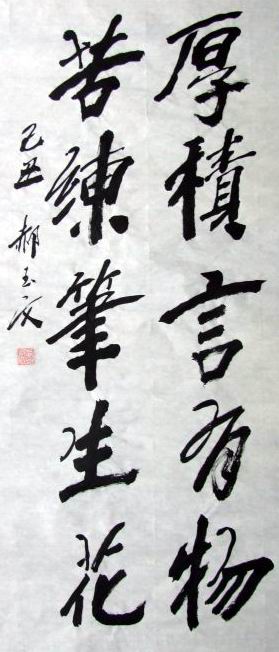 厚積言有物
苦練筆生花
己丑 郝玉